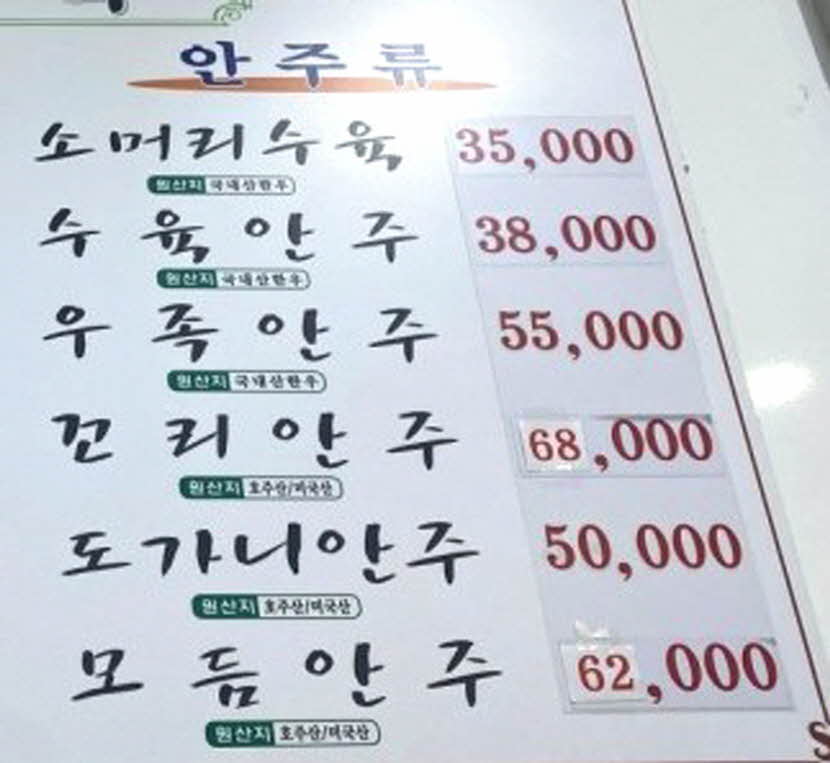 안주류
소머리수육 35,000
원산지 국내산한우
수육안주 38,000
원산지 국내산한우
우족안주 55,000
원산지 국내산한우
꼬리안주 68,000
원산지 호주산/미국산
도가니안주 50,000
원산지 호주산/미국산
모듬안주 62,000
원산지 호주산/미국산